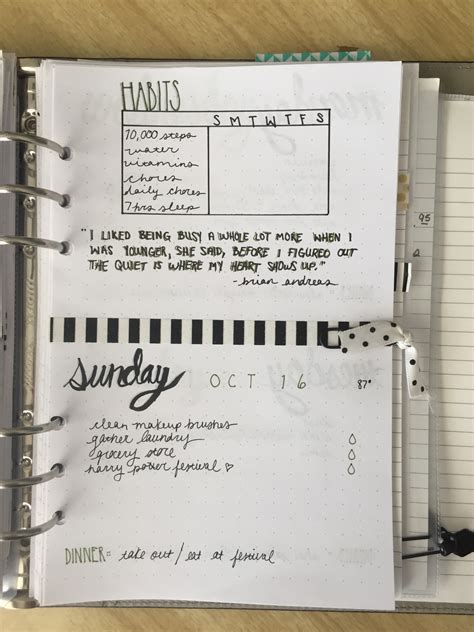 HABITS
S M T W T F S
10,000 steps
water
vitamins
chores
daily chores
7hrs sleep
"I LIKED BEING BUSY A WHOLE LOT MORE WHEN I
WAS YOUNGER, SHE SAID, BEFORE I FIGURED OUT
THE QUIET IS WHERE MY HEART SHOWS UP."
-brian andreas
sunday OCT 16 87°
clean makeup brushes
gather laundry
grocery store
harry potter festival ♡
DINNER: take out / eat at festival
.95